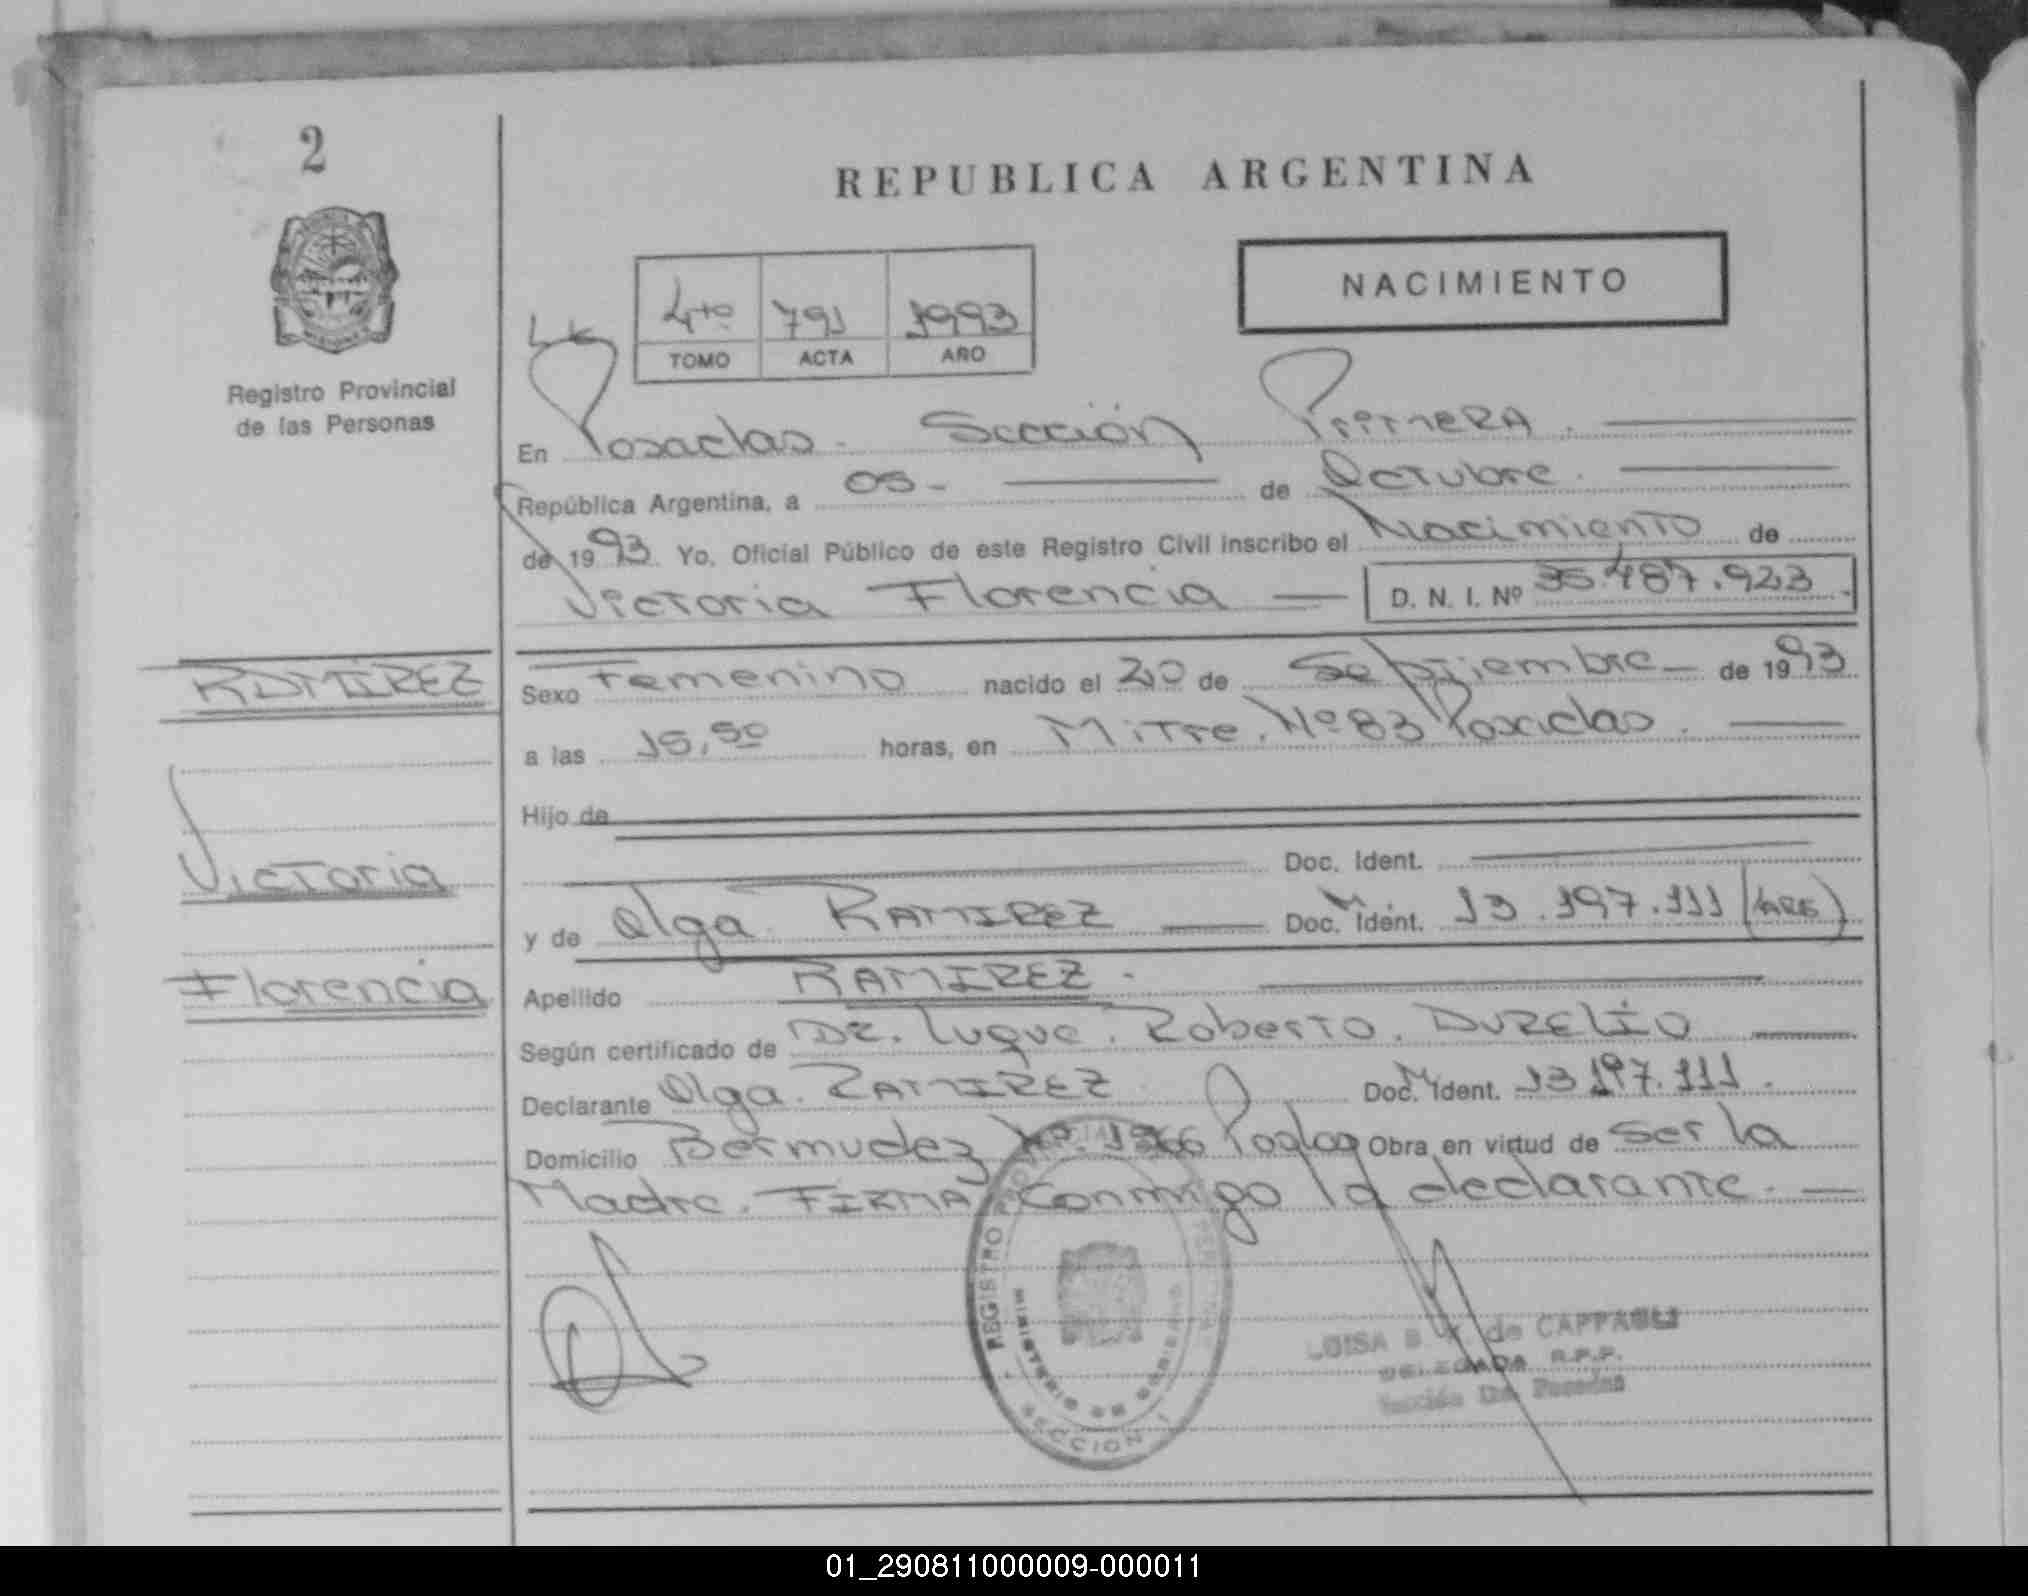 2
REPUBLICA ARGENTINA
NACIMIENTO
4to 791 1993
TOMO ACTA AÑO
Registro Provincial
de las Personas
En Posadas. Sección Primera.
República Argentina, a 05- de Octubre.
de 1993. Yo, Oficial Público de este Registro Civil inscribo el Nacimiento de
Victoria Florencia D. N. I. Nº 35.487.923
RAMIREZ
Sexo Femenino nacido el 20 de Septiembre de 1993
a las 15,50 horas, en Mitre. Nº 83 Posadas.
Hijo de
Doc. Ident.
Victoria
y de Olga RAMIREZ Doc. Ident. 13.197.111 (ARG)
Florencia
Apellido RAMIREZ.
Según certificado de DR. Luque. Roberto. AURELIO
Declarante Olga. RAMIREZ Doc. Ident. 13197.111.
Domicilio Bermudez Nº. 1966 Posdas Obra en virtud de ser la
Madre. FIRMA Conmigo la declarante.
REGISTRO PROVINCIAL PERSONAS
MINISTERIO DE GOBIERNO
SECCION 1
LUISA B. de CAPPAGLI
DELEGADA R.P.P.
Sección 1ra. Posadas
01_290811000009-000011